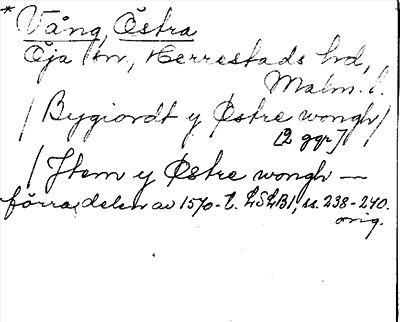 * Vång, Östra
Öja sn, Herrestads hd,
Malm. l.
/ Bygiordt y Østre wongh /
[2 ggr]
/ Jtem y Østre wongh —
förra delen av 1570-t. LSLB1, ss. 238-240.
orig.